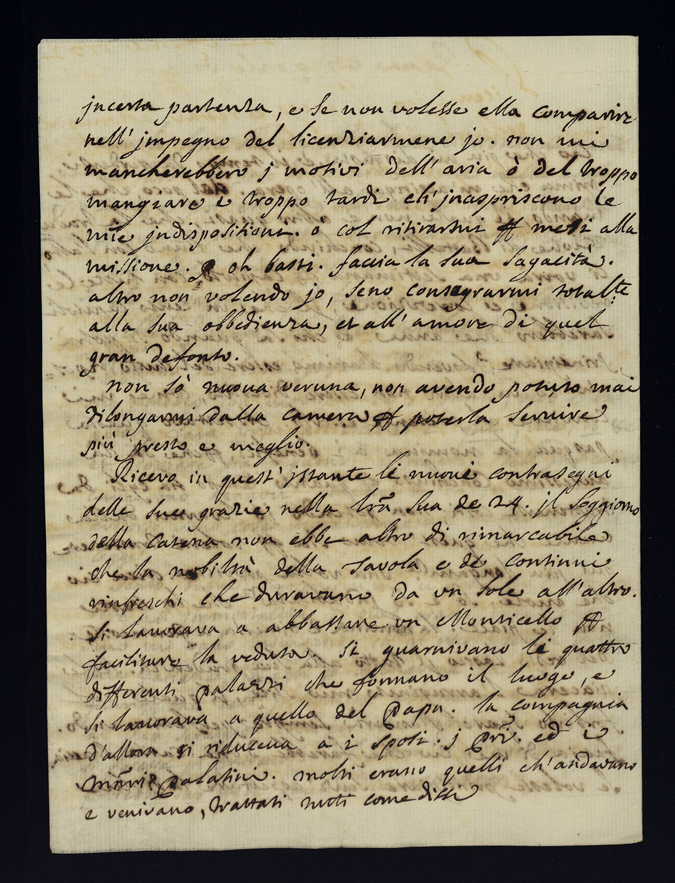 jncerta partenza, e se non volesse ella comparire
nell' jmpegno del licenziarmene jo. non mi
mancherebbero j motivi dell' aria ò del troppo
mangiare e troppo tardi ch' jnaspriscono le
mie jndisposizioni. o col ritirarmi mesi alla
missione. oh basti. faccia la sua sagacità.
altro non volendo jo, seno consegrarmi totalte
alla sua obbedienza, et all' amore di quel
gran defonto.
non sò nuova veruna, non avendo potuto mai
dilongarmi dalla camera poterla servire
più presto e meglio.
Ricevo in quest' jstante le nuove contrasegni
delle sue grazie nella lrã sua de 24. jl soggiorno
della Catena non ebbe altro di rimarcabile
che la nobiltà della tavola e de continui
rinfreschi che duravano da un sole all' altro.
si lavorava a abbassare un Monticello
facilitare la veduta. si guarnivano le quattro
differenti palazzi che formano il luogo, e
si lavorava a quello del Papa. la compagnia
d'allora si riduceva a i sposi. j ed i
palatini. molti erano quelli ch' andavano
e venivano, trattati tutti come